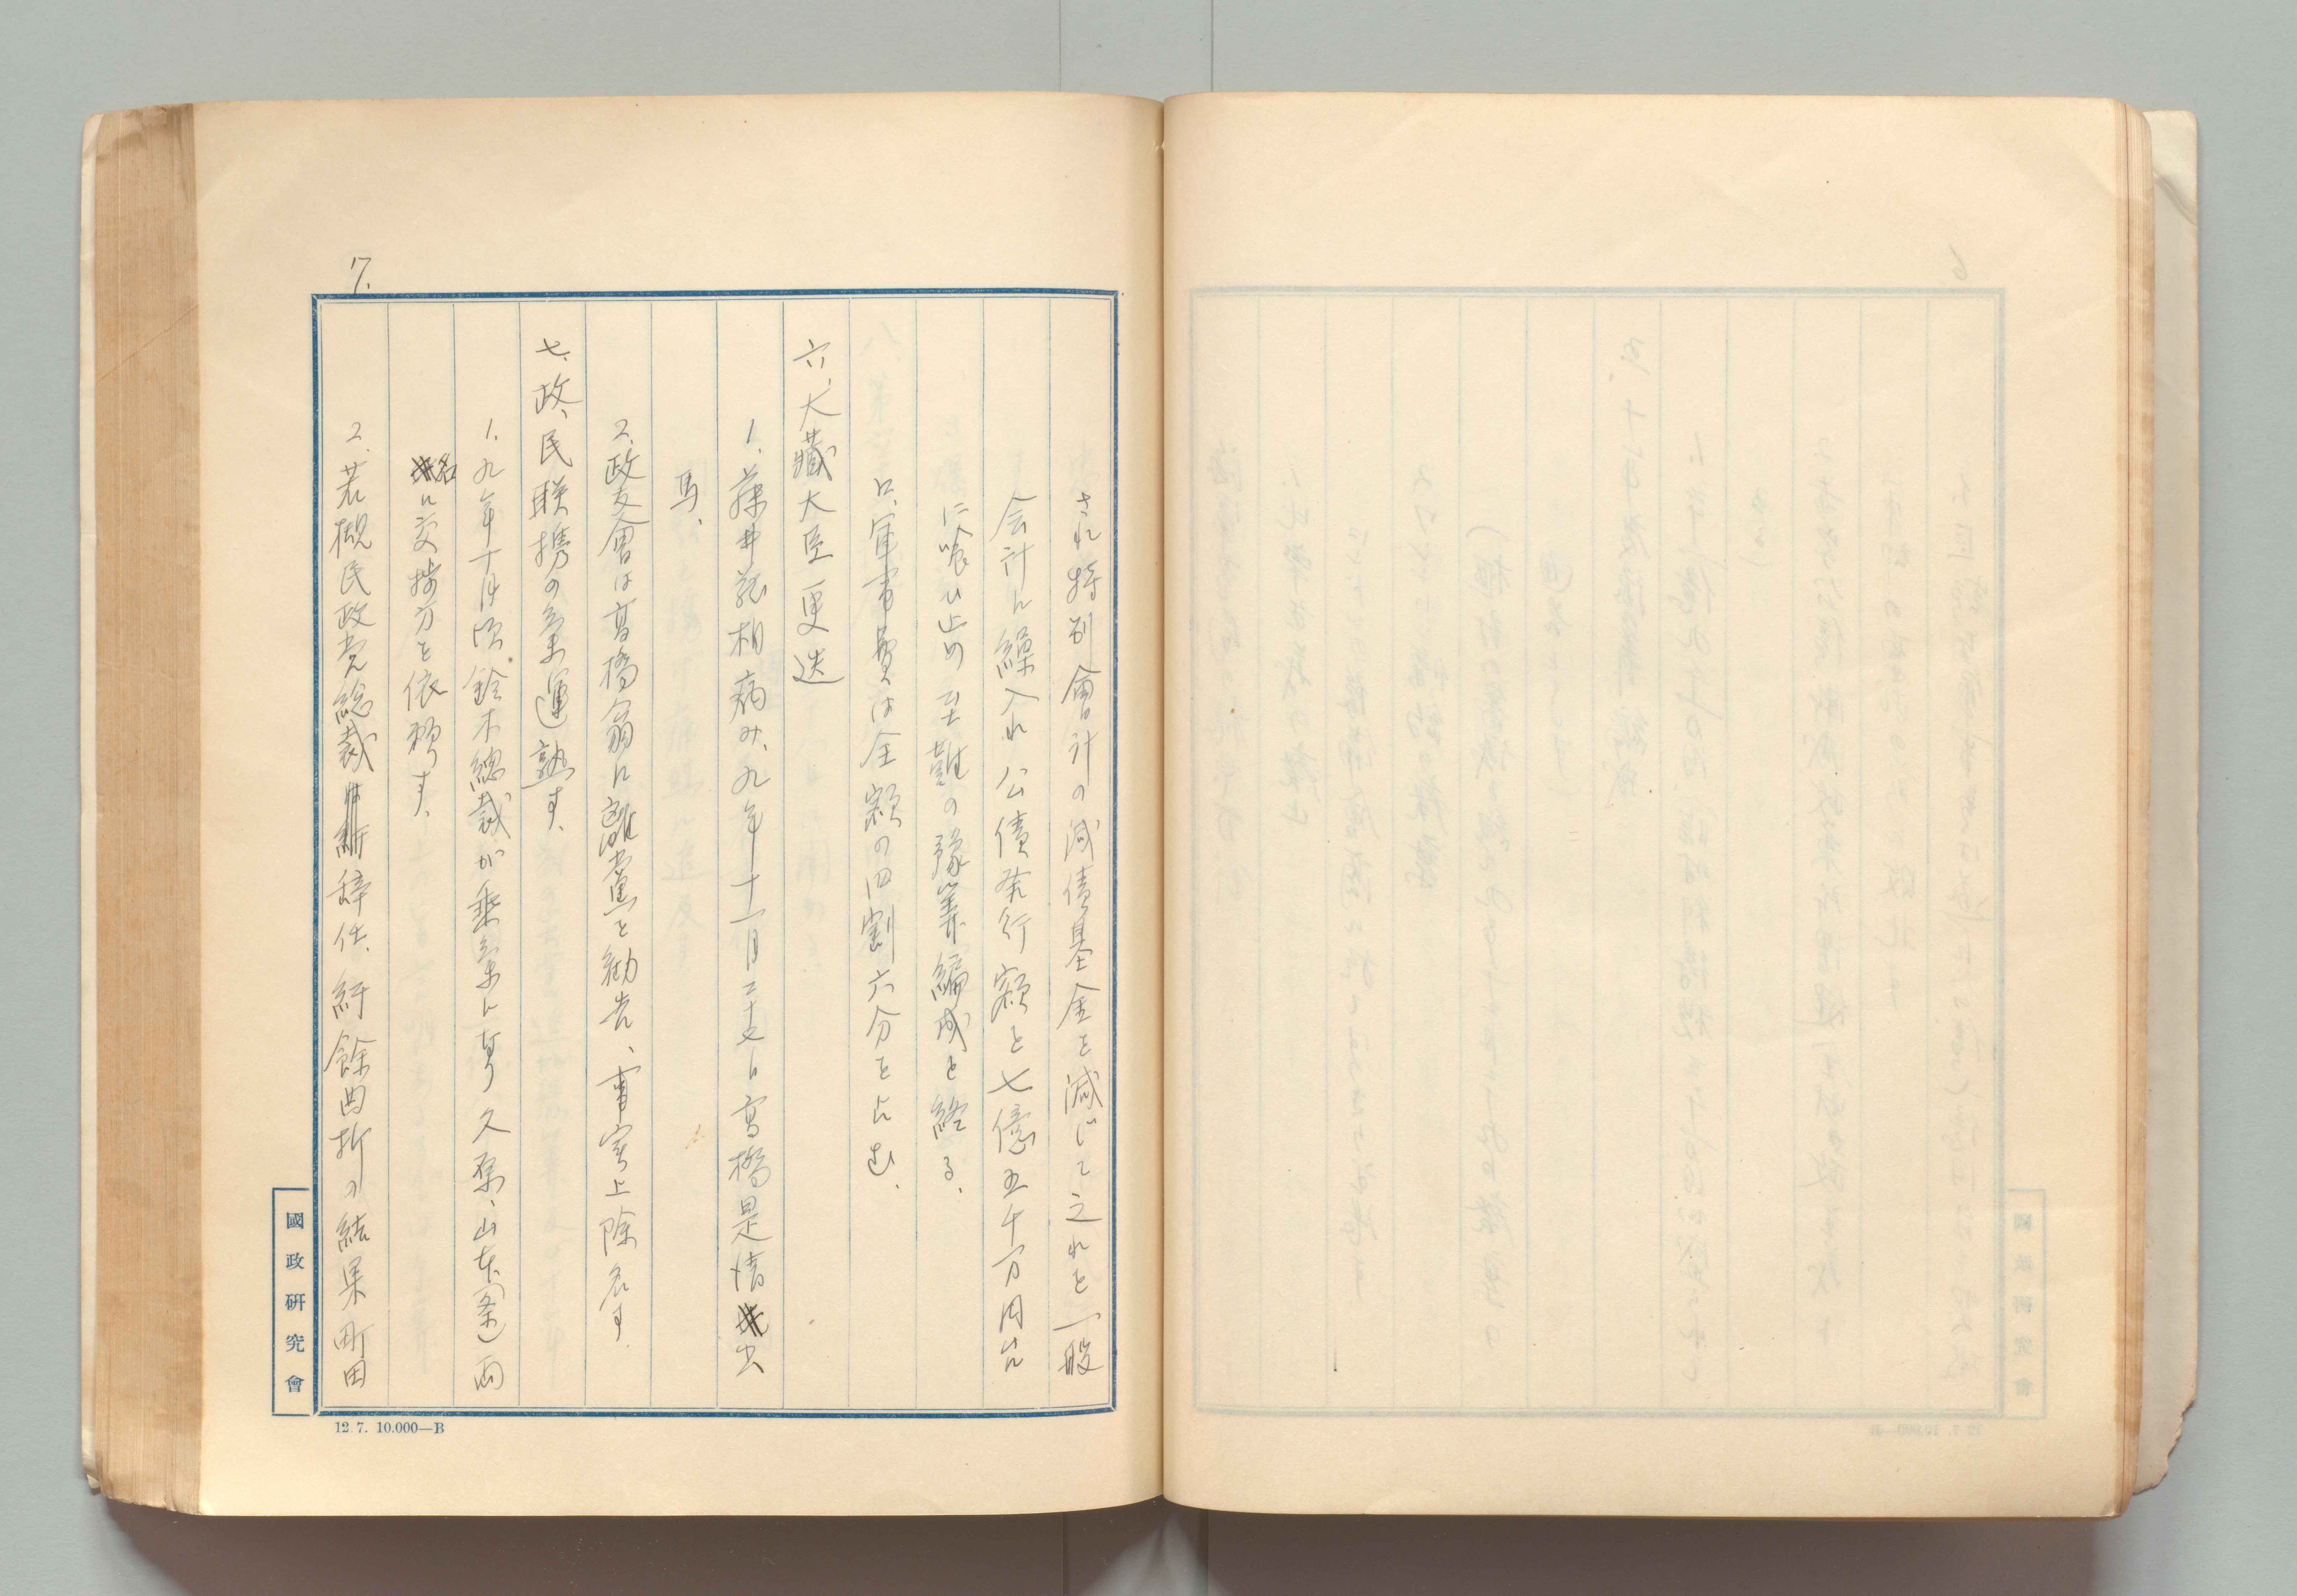 7.
され特別會計の減債基金を減じて之れを一般
会計に繰入れ公債発行額を七億五千万円台
に喰ひ止め至難の豫算編成を終る、
ロ、軍事費は全額の四割六分を占む、
六、大藏大臣更迭
1、藤井蔵相病み、九年十一月二十七日高橋是清出
馬、
2、政友會は高橋翁に離黨を勧告、事実上除名す
七、政、民联携の気運熟す、
1、九年十月頃、鈴木總裁が乗気になり久原、山本(条)両
名に交捗方を依頼す、
2、若槻民政党総裁辞任、紆餘曲折の結果町田
國政研究會
12.7. 10.000—B